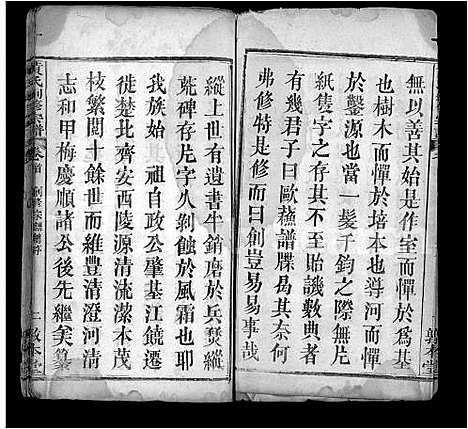 無以善其始是作室而憚於為基
也樹木而憚於培本也導河而憚
於鑿源也當一髮千鈞之際無片
紙隻字之存其不至貽譏數典者
有幾君子曰歐蘇譜牒曷其奈何
弗修特是修而曰創豈易易事哉
縱上世有遺書半銷磨於兵燹縱
荒碑存片字久剝蝕於風霜也耶
我族始其祖自政公肇基江饒遷
徙楚北齊安西陵源清流潔本茂
枝繁閱十餘世而維豐清澄河清
志和甲梅慶順諸公後先繼矣纂
黃氏創修宗譜 卷首
敦本堂